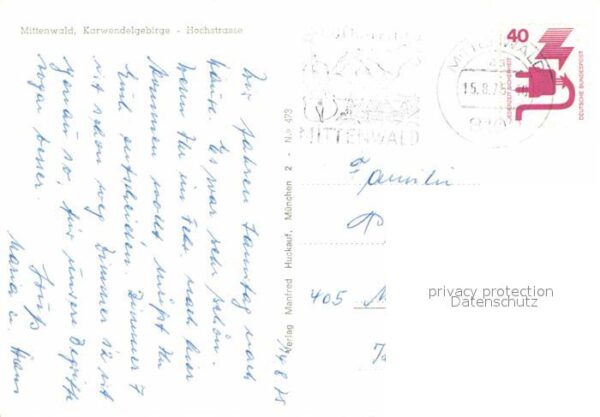 Mittenwald, Karwendelgebirge - Hochstrasse
Wir fahren Samstag nach
Hause. Es war sehr schön.
Wenn Ihr im Febr. nach hier
kommen wollt müßt Ihr
Euch entscheiden. Zimmer 7
ist schon weg Zimmer 12 ist
genau so, für unsere Begriffe
sogar besser.
Gruß
Maria u. Hans
14.8.75
Verlag Manfred Huckauf, München 2 - N.o 473
MITTENWALD
MITTENWALD
15.8.75
810
40
JEDERZEIT SICHERHEIT
DEUTSCHE BUNDESPOST
Familie
405 M
privacy protection
Datenschutz